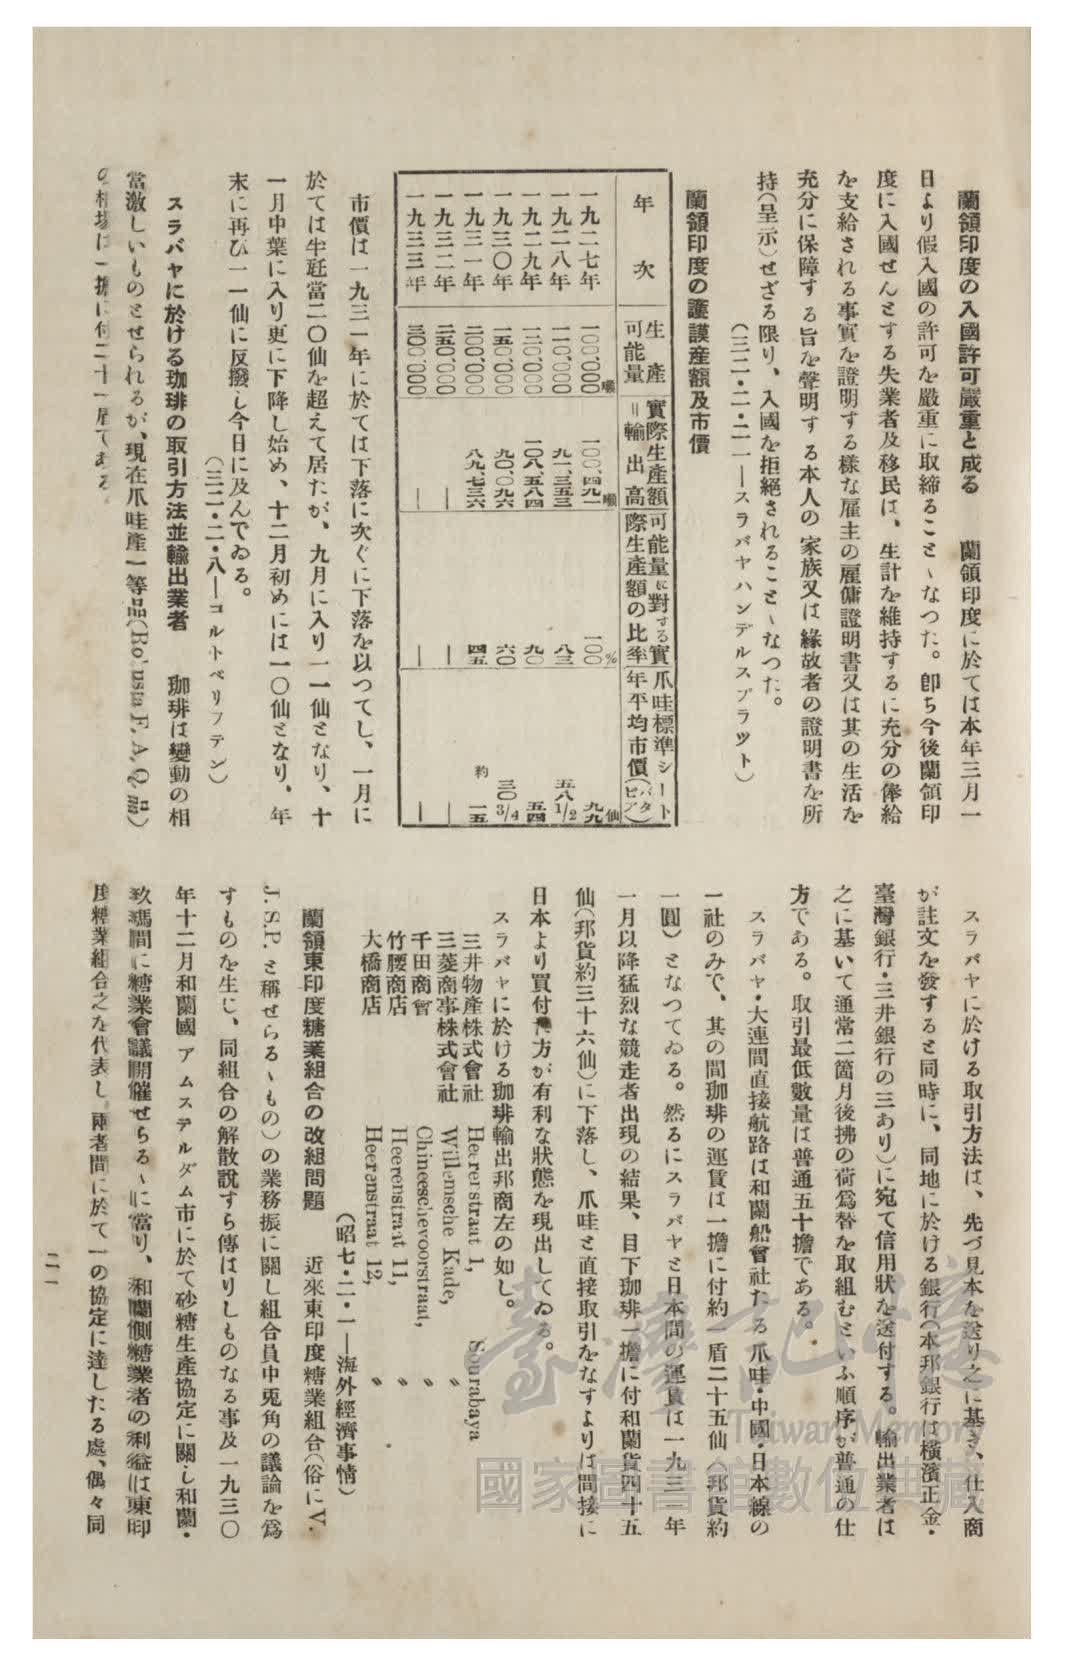 蘭領印度の入國許可嚴重と成る　蘭領印度に於ては本年三月一
日より假入國の許可を嚴重に取締ることゝなつた。卽ち今後蘭領印
度に入國せんとする失業者及移民は、生計を維持するに充分の俸給
を支給される事實を證明する樣な雇主の雇傭證明書又は其の生活を
充分に保障する旨を聲明する本人の家族又は緣故者の證明書を所
持(呈示)せざる限り、入國を拒絕されることゝなつた。
(三二・二・二一―スラバヤハンデルスブラット)
蘭領印度の護謨産額及市價
年次　生産可能量　實際生産額=輸出高　可能量に對する實際生産額の比率　爪哇標準シート年平均市價(バタビア)
一九二七年　一〇〇,〇〇〇噸　一〇〇,四九一噸　一〇〇%　九九仙
一九二八年　一一〇,〇〇〇　九一,三五三　八三　五八1/2
一九二九年　一二〇,〇〇〇　一〇八,五八四　九〇　五四
一九三〇年　一五〇,〇〇〇　九〇,〇九六　六〇　三〇3/4
一九三一年　二〇〇,〇〇〇　八九,七三六　四五　約一五
一九三二年　二五〇,〇〇〇　―　―　―
一九三三年　三〇〇,〇〇〇　―　―　―
市價は一九三一年に於ては下落に次ぐに下落を以つてし、一月に
於ては半瓩當二〇仙を超えて居たが、九月に入り一一仙となり、十
一月中葉に入り更に下降し始め、十二月初めには一〇仙となり、年
末に再び一一仙に反撥し今日に及んでゐる。
(三二・二・八―コルトベリフテン)
スラバヤに於ける珈琲の取引方法並輸出業者　珈琲は變動の相
當激しいものとせられるが、現在爪哇産一等品(Robusta F. A. Q. 品)
の相場は一擔に付二十一盾である。
スラバヤに於ける取引方法は、先づ見本を送り之に基き、仕入商
が註文を發すると同時に、同地に於ける銀行(本邦銀行は橫濱正金・
臺灣銀行・三井銀行の三あり)に宛て信用狀を送付する。輸出業者は
之に基いて通常二箇月後拂の荷爲替を取組むといふ順序が普通の仕
方である。取引最低數量は普通五十擔である。
スラバヤ・大連間直接航路は和蘭船會社たる爪哇・中國・日本線の
一社のみで、其の間珈琲の運賃は一擔に付約一盾二十五仙(邦貨約
一圓)となつてゐる。然るにスラバヤと日本間の運賃は一九三一年
一月以降猛烈な競走者出現の結果、目下珈琲一擔に付和蘭貨四十五
仙(邦貨約三十六仙)に下落し、爪哇と直接取引をなすよりは間接に
日本より買付た方が有利な狀態を現出してゐる。
スラバヤに於ける珈琲輸出邦商左の如し。
三井物産株式會社　Heerenstraat 1,　Sourabaya
三菱商事株式會社　Willemsche Kade,　〃
千田商會　Chineeschevoorstraat,　〃
竹腰商店　Heerenstraat 11,　〃
大橋商店　Heerenstraat 12,　〃
(昭七・二・一―海外經濟事情)
蘭領東印度糖業組合の改組問題　近來東印度糖業組合(俗にV.
J. S. P. と稱せらるゝもの)の業務振に關し組合員中兎角の議論を爲
すものを生じ、同組合の解散說すら傳はりしものなる事及一九三〇
年十二月和蘭國アムステルダム市に於て砂糖生産協定に關し和蘭・
玖瑪間に糖業會議開催せらるゝに當り、和蘭側糖業者の利益は東印
度糖業組合之を代表し兩者間に於て一の協定に達したる處、偶々同
二一
臺灣記憶
Taiwan Memory
國家圖書館數位典藏